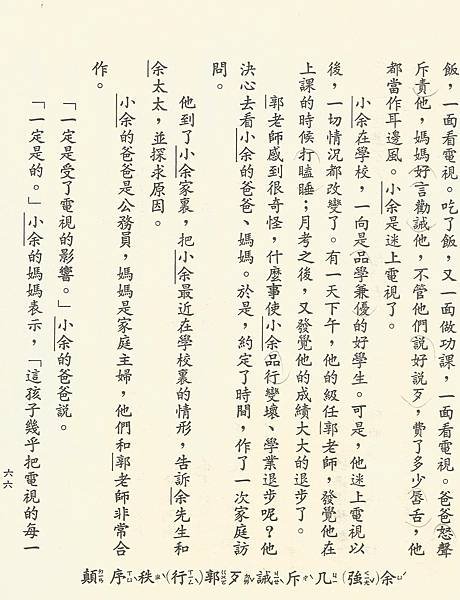 飯，一面看電視。吃了飯，又一面做功課，一面看電視。爸爸怒聲
斥責他，媽媽好言勸誡他，不管他們說好說歹，費了多少唇舌，他
都當作耳邊風。小余是迷上電視了。
小余在學校，一向是品學兼優的好學生。可是，他迷上電視以
後，一切情況都改變了。有一天下午，他的級任郭老師，發覺他在
上課的時候打瞌睡；月考之後，又發覺他的成績大大的退步了。
郭老師感到很奇怪，什麼事使小余品行變壞、學業退步呢？他
決心去看小余的爸爸、媽媽。於是，約定了時間，作了一次家庭訪
問。
他到了小余家裏，把小余最近在學校裏的情形，告訴余先生和
余太太，並探求原因。
小余的爸爸是公務員，媽媽是家庭主婦，他們和郭老師非常合
作。
「一定是受了電視的影響。」小余的爸爸說。
「一定是的。」小余的媽媽表示，「這孩子幾乎把電視的每一
六六
顛 序 秩 (行) 郭 歹 誡 斥 几 (強) 余